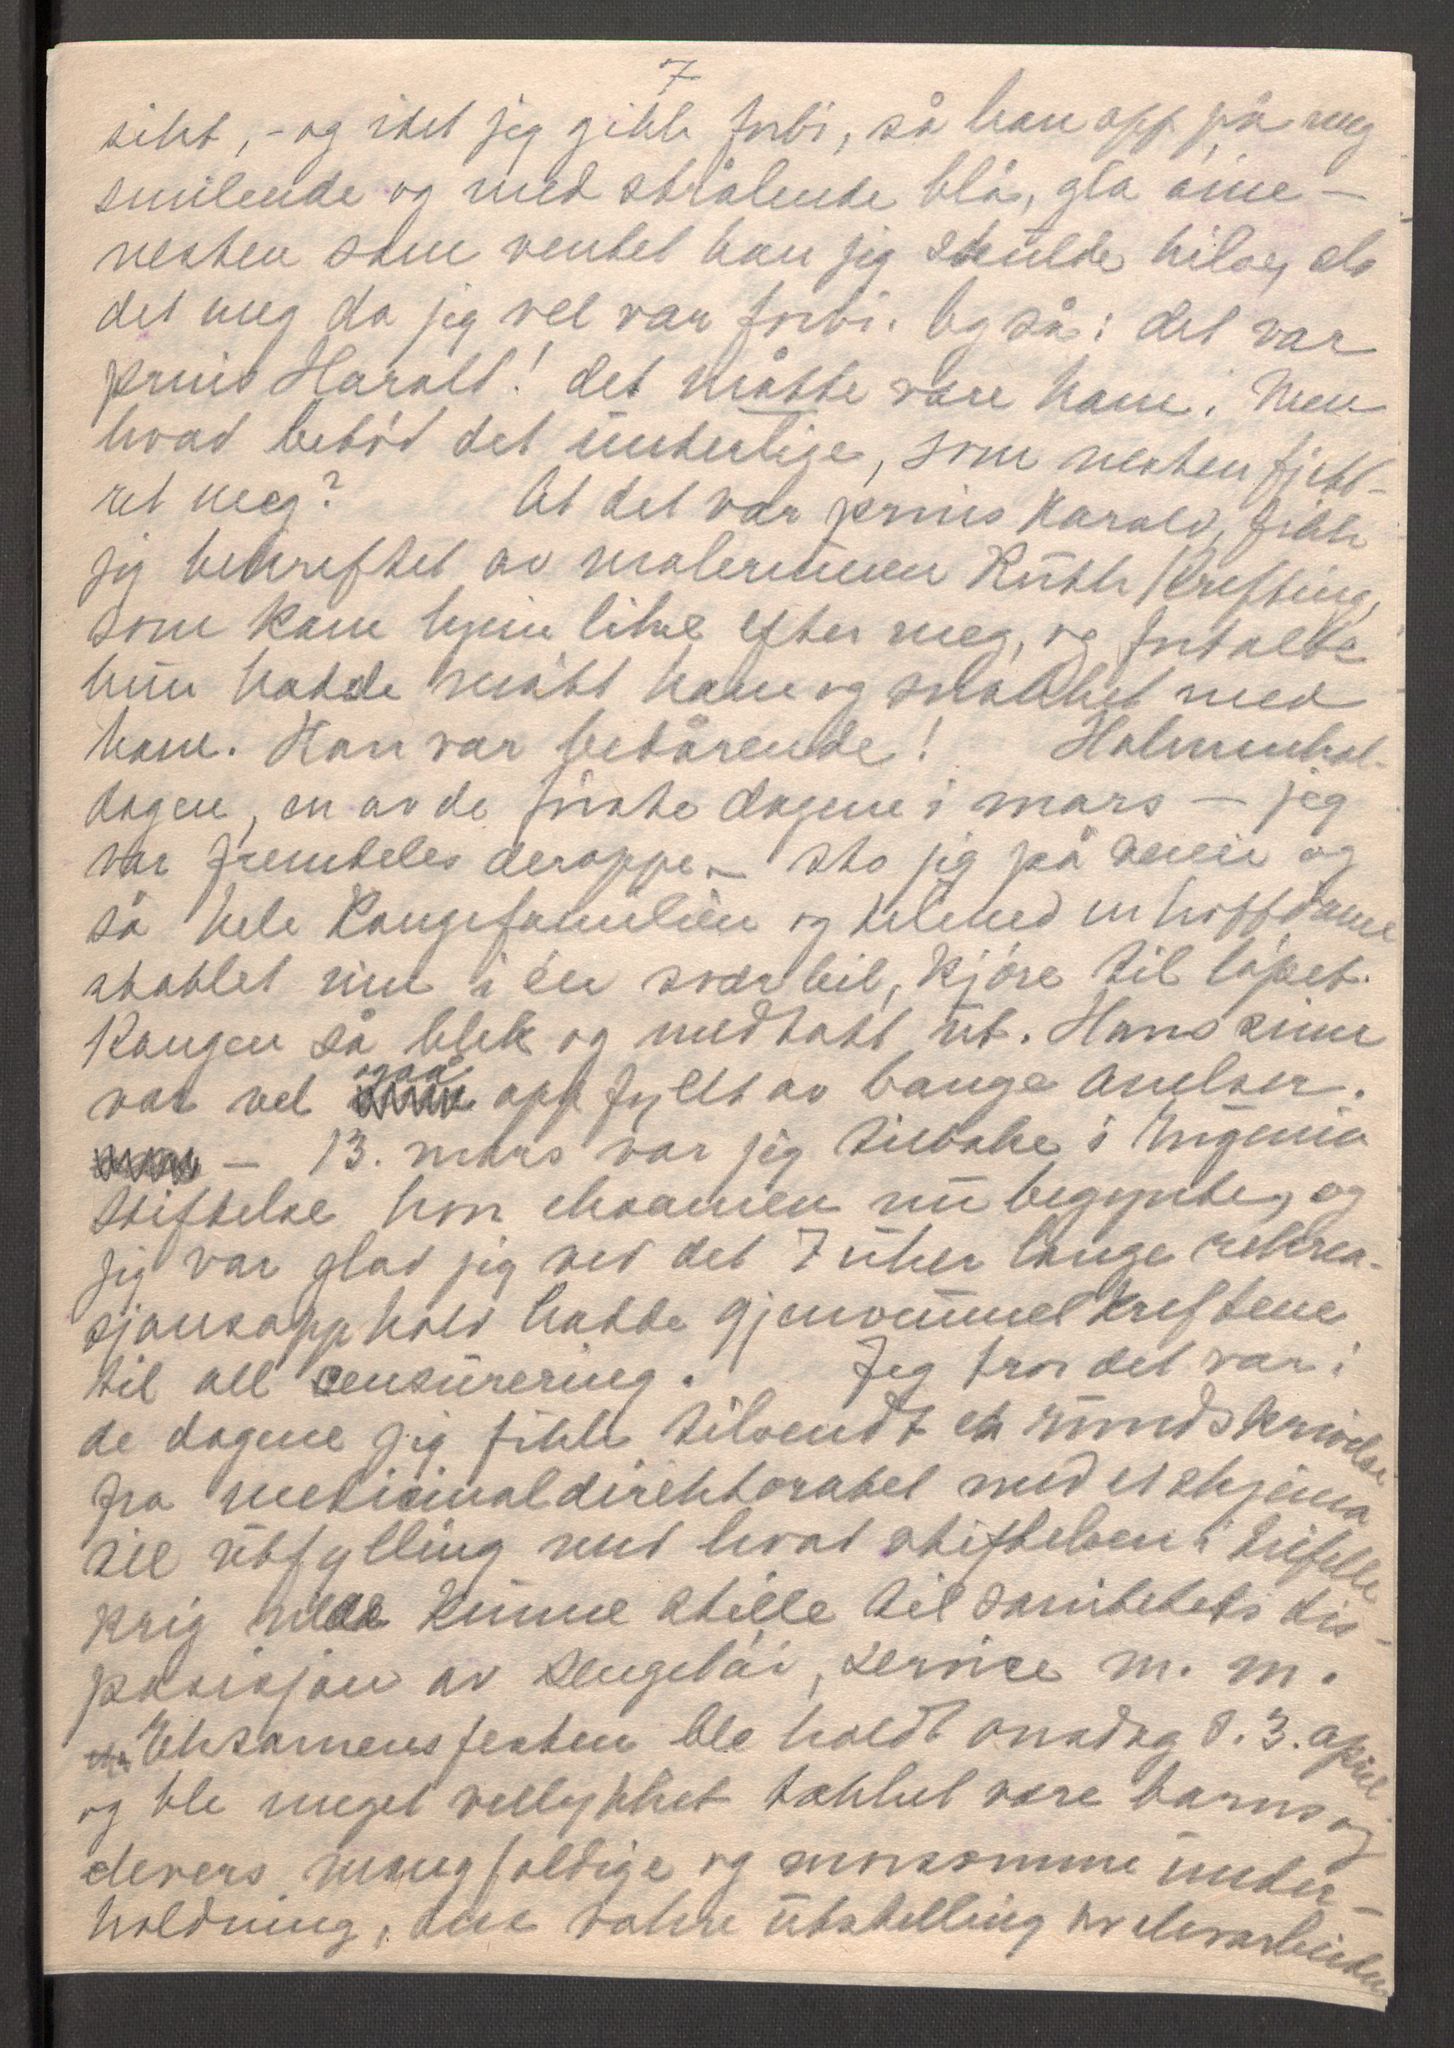 7
sikt, - og idet jeg gikk forbi, så han opp på meg
smilende og med strålende blå, gla öine -
nesten som ventet han jeg skulde hilse, slo
det meg da jeg vel var forbi. Og så: det var
prins Harald! det måtte være ham. Men
hvad betöd det underlige, som nesten fjett-
ret meg? At det var prins Harald, fikk
jeg bekreftet av malerinnen Ruth Krefting,
som kom hjem like efter meg, og fortalte
hun hadde mött ham og snakket med
ham. Han var bedårende! Holmenkol-
dagen, en av de förste dagene i mars - jeg
var fremdeles deroppe - sto jeg på veien og
så hele Kongefamilien og tilmed en hoffdame
stablet inn i én svær bil, kjöre til löpet.
Kongen så blek og medtatt ut. Hans sinn
var vel også oppfyllt av bange anelser.
- 13. mars var jeg tilbake i Eugenia
Stiftelse hvor eksamen nu begynte, og
jeg var glad jeg ved det 7 uker lange rekrea-
sjonsopphold hadde gjenvunnet kreftene
til all censurering. Jeg tror det var i
de dagene jeg fikk tilsendt en rundskrivelse
fra medicinaldirektoratet med et skjema
til utfylling med hvad stiftelsen i tilfelle
krig vilde kunne stille til sanitetets dis-
posisjon av sengetöi, service m. m.
Eksamensfesten ble holdt onsdag d. 3. april
og ble meget vellykket takket være barns og
elevers mangfoldige og morsomme under-
holdning, den vakre utstilling av elevarbeider